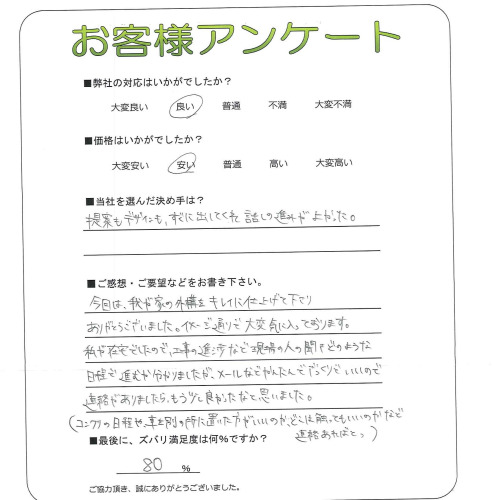 お客様アンケート
■弊社の対応はいかがでしたか？
大変良い 良い 普通 不満 大変不満
■価格はいかがでしたか？
大変安い 安い 普通 高い 大変高い
■当社を選んだ決め手は？
提案もデザインも、すぐに出してくれて 話しの進みがよかった。
■ご感想・ご要望などをお書き下さい。
今回は、我が家の外構をキレイに仕上げて下さり
ありがとうございました。イメージ通りで大変気に入っております。
私が在宅でしたので、工事の進歩など現場の人の聞けどのような
日程で進むか分かりましたが、メールなどかんたんでざっくりでいいので
連絡がありましたら、もう少し良かったなと思いました。
(コンクリの日程や、車を別の所に置いた方がいいのか、どこは触ってもいいのかなど
連絡あればと。)
■最後に、ズバリ満足度は何%ですか？
80 %
ご協力頂き、誠にありがとうございました。